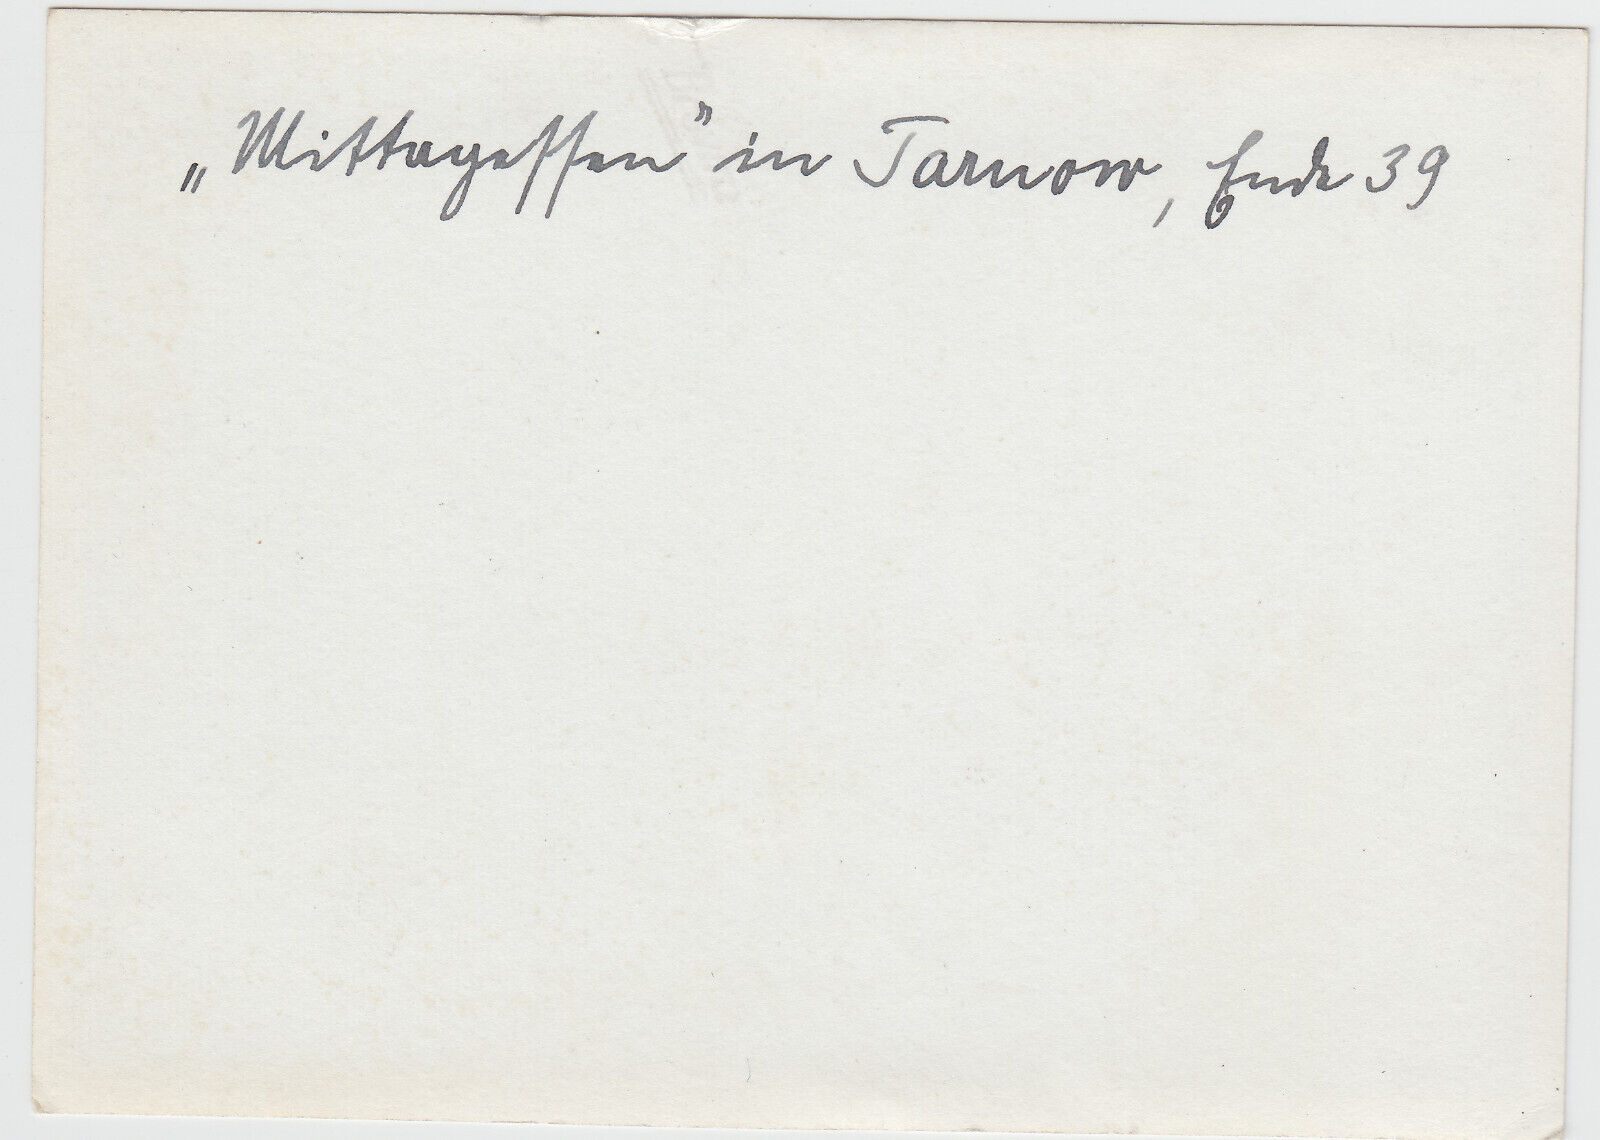 „Mittagessen" in Tarnow, Ende 39